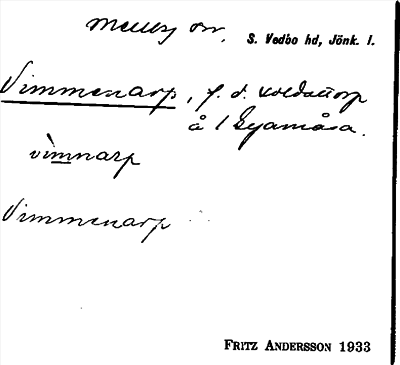 Mellby sn, S. Vedbo hd, Jönk. l.
Vimmenarp, f. d. soldattorp
å 1 Gyamåsa.
vìmnarp
Vimmenarp
FRITZ ANDERSSON 1933